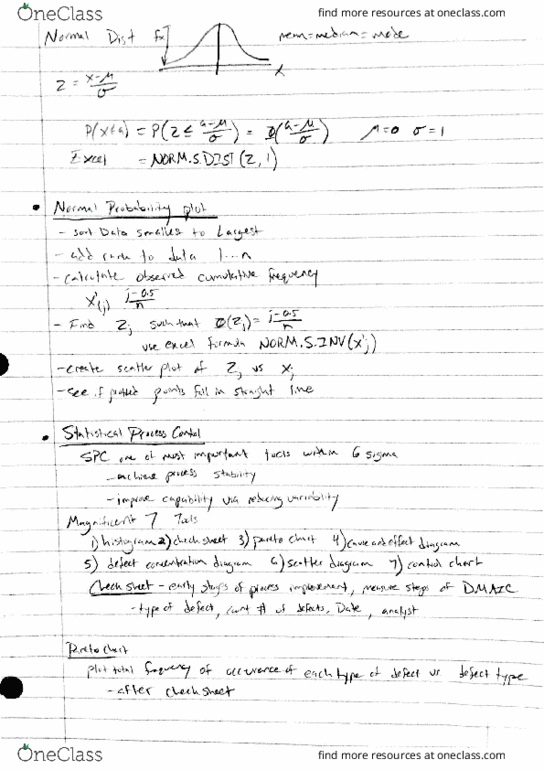 OneClass find more resources at oneclass.com
Normal Dist fx mean=median=mode
X
Z = x-μ/σ
P(x≤a) = P(Z ≤ a-μ/σ) = Φ(a-μ/σ) μ=0 σ=1
Excel = NORM.S.DIST(Z,1)
• Normal Probability plot
- sort Data smallest to Largest
- add rank to data 1...n
- calculate observed cumulative frequency
x'(j) j-0.5/n
- Find Zj such that Φ(Zj) = j-0.5/n
use excel formula NORM.S.INV(x'j)
- create scatter plot of Zj vs xj
- see if plotted points fall in straight line
• Statistical Process Control
SPC one of most important tools within 6 sigma
- achieve process stability
- improve capability via reducing variability
Magnificent 7 Tools
1) histogram 2) check sheet 3) pareto chart 4) cause and effect diagram
5) defect concentration diagram 6) scatter diagram 7) control chart
Check sheet - early stages of process implement, measure steps of DMAIC
- type of defect, count # of defects, Date, analyst
Pareto chart
plot total frequency of occurence of each type of defect vs defect type
- after check sheet
OneClass find more resources at oneclass.com